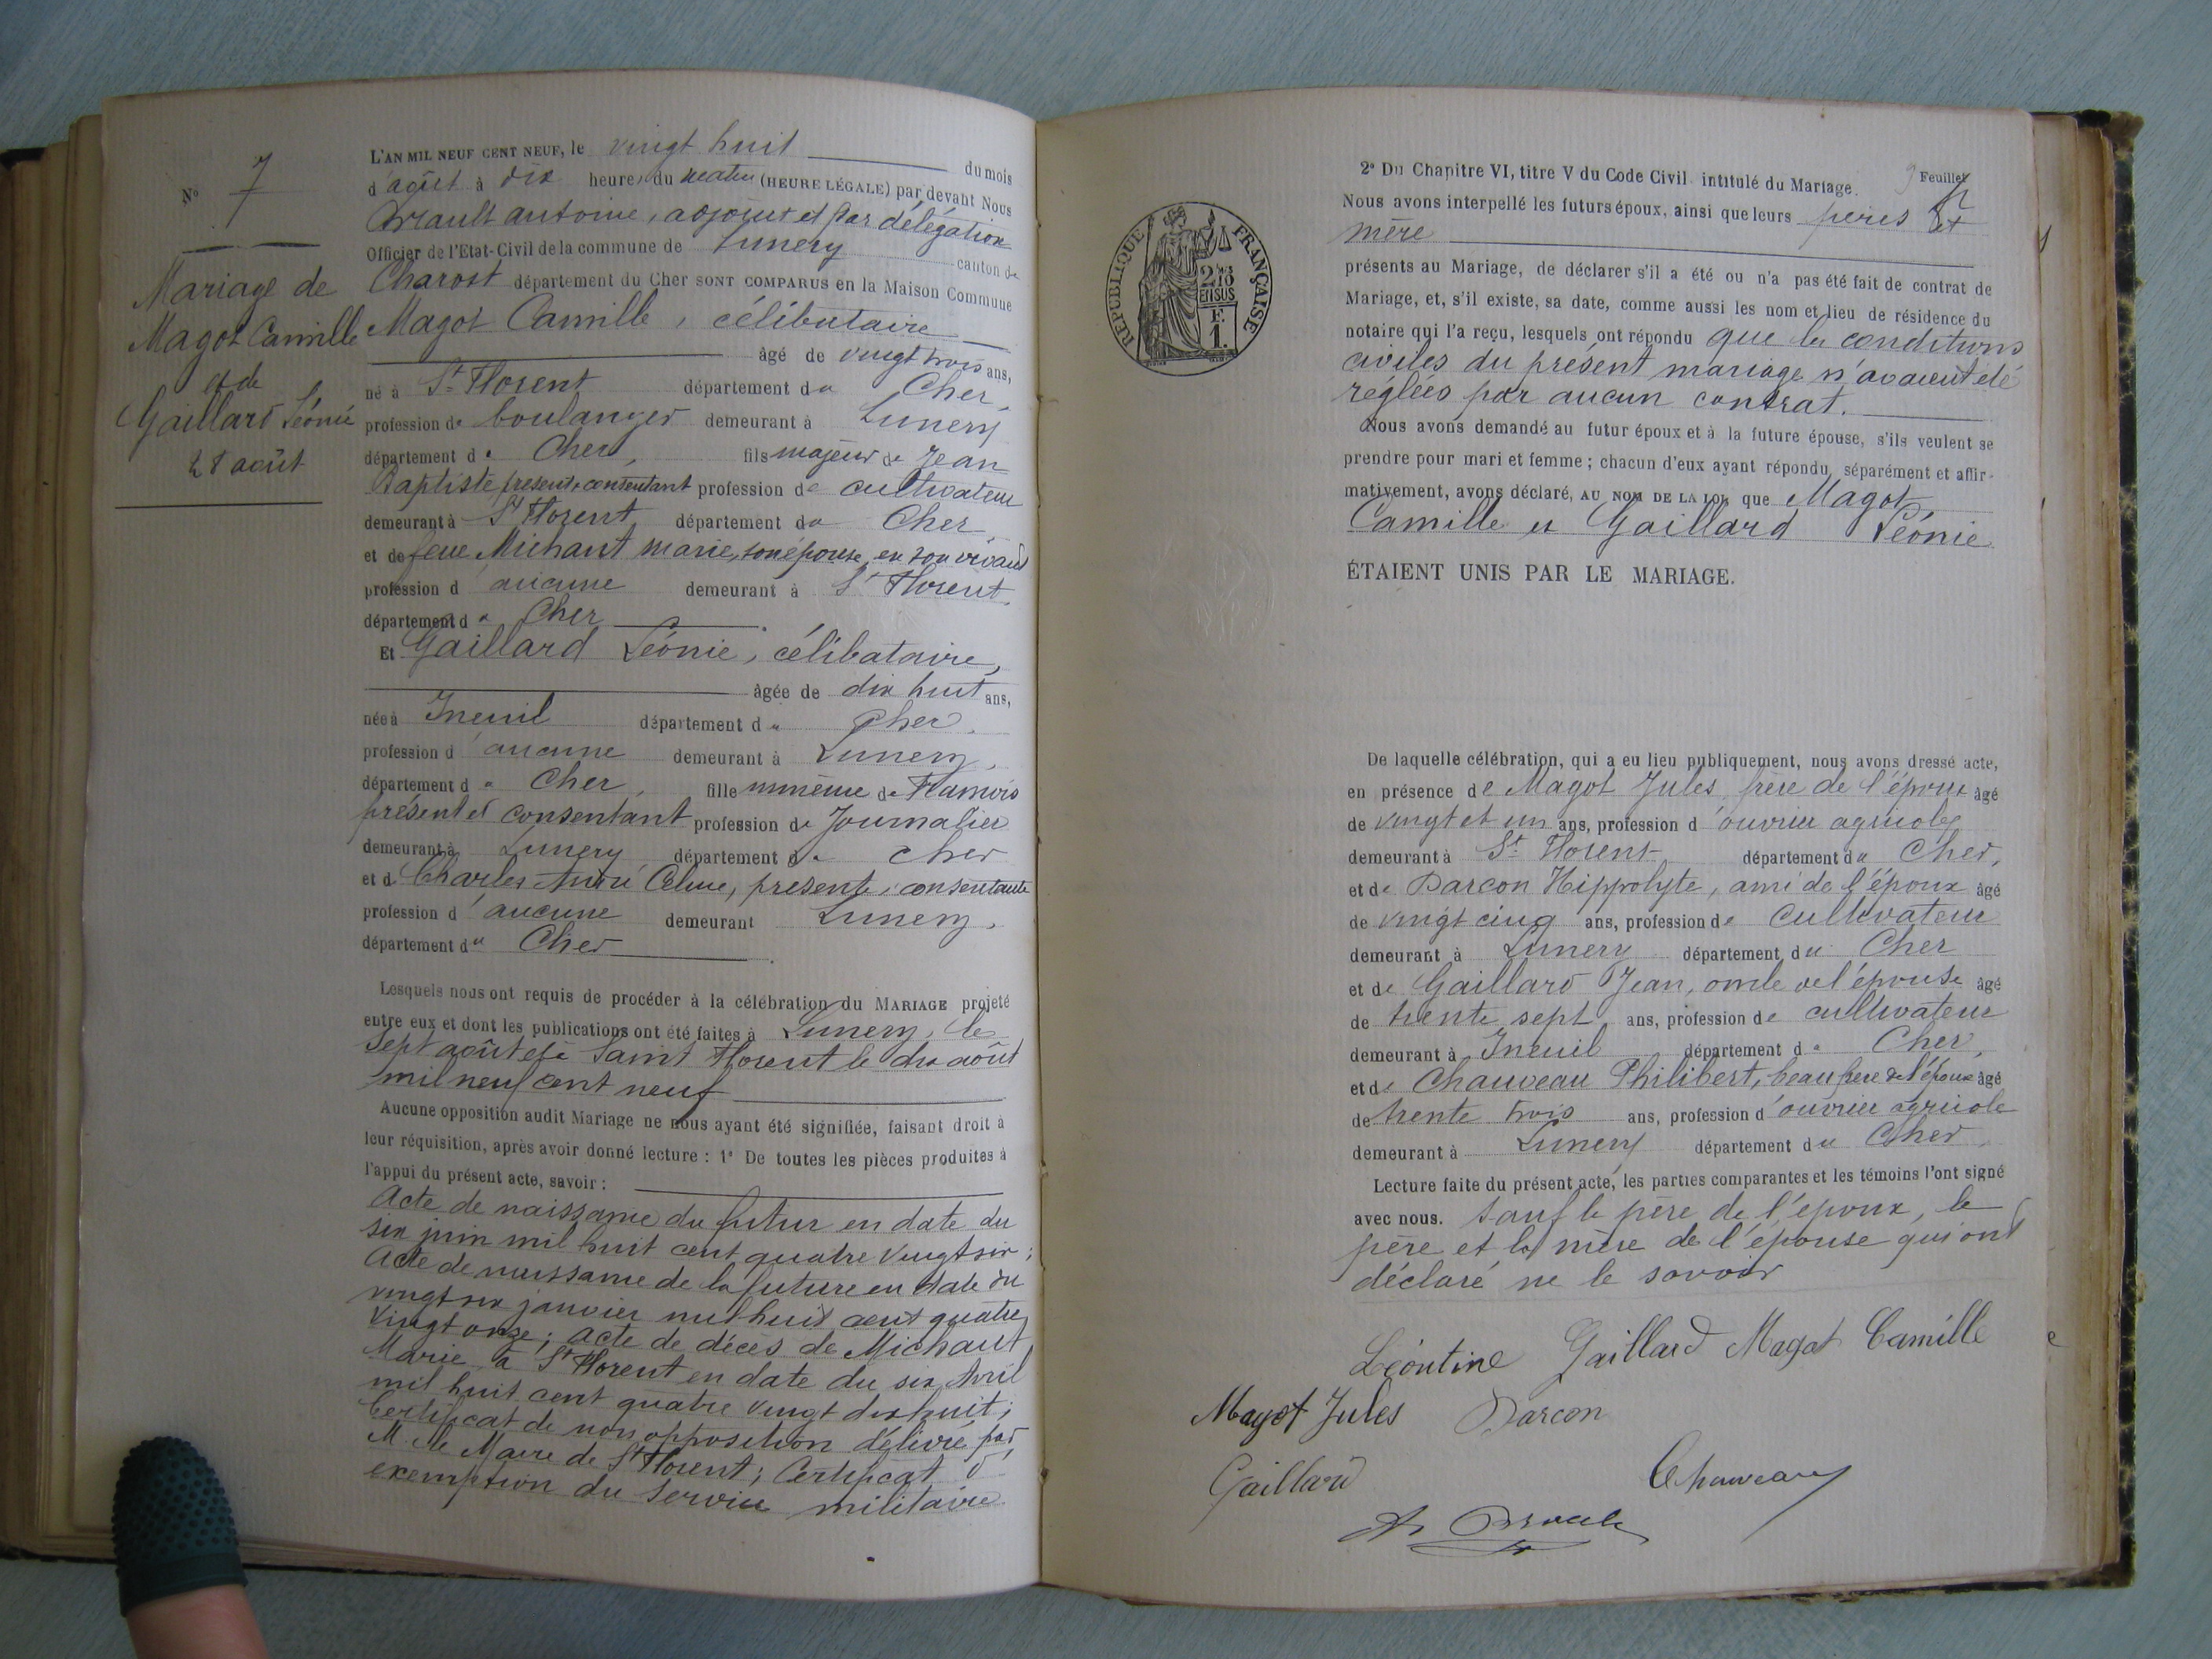 N° 7
Mariage de
Magot Camille
et de
Gaillard Léonie
28 août
L'AN MIL NEUF CENT NEUF, le vingt huit du mois
d'août à dix heures du matin (HEURE LÉGALE) par devant Nous
antoine, adjoint et par délégation
Officier de l'Etat-Civil de la commune de Lunery canton de
Charost département du Cher SONT COMPARUS en la Maison Commune
Magot Camille, célibataire
âgé de vingt trois ans,
né à St Florent département du Cher,
profession de boulanger demeurant à Lunery
département du Cher, fils majeur de Jean
Baptiste présent & consentant profession de cultivateur
demeurant à St Florent département du Cher
et de feue Michant Marie, son épouse, en son vivant
profession d'aucune demeurant à St Florent
département du Cher.
Et Gaillard Léonie, célibataire,
âgée de dix huit ans,
née à Ineuil département du Cher,
profession d'aucune demeurant à Lunery,
département du Cher, fille mineure de François
présent et consentant profession de Journalier
demeurant à Lunery département du Cher
et d Charles André Celine, présente & consentante
profession d'aucune demeurant Lunery,
département du Cher.
Lesquels nous ont requis de procéder à la célébration du MARIAGE projeté
entre eux et dont les publications ont été faites à Lunery, le
sept août et à Saint Florent le dix août
mil neuf cent neuf
Aucune opposition audit Mariage ne nous ayant été signifiée, faisant droit à
leur réquisition, après avoir donné lecture : 1° De toutes les pièces produites à
l'appui du présent acte, savoir :
Acte de naissance du futur en date du
six juin mil huit cent quatre vingt six ;
Acte de naissance de la future en date du
vingt six janvier mil huit cent quatre
vingt onze ; acte de décès de Michant
Marie à St Florent en date du six Avril
mil huit cent quatre vingt dix huit ;
Certificat de non opposition délivré par
M. le Maire de St Florent ; Certificat d'
exemption du service militaire.
RÉPUBLIQUE FRANÇAISE
2/10 EN SUS
F. 1.
2° Du Chapitre VI, titre V du Code Civil intitulé du Mariage.
9 Feuillet
Nous avons interpellé les futurs époux, ainsi que leurs pères et
mère
présents au Mariage, de déclarer s'il a été ou n'a pas été fait de contrat de
Mariage, et, s'il existe, sa date, comme aussi les nom et lieu de résidence du
notaire qui l'a reçu, lesquels ont répondu que les conditions
civiles du présent mariage n'avaient été
réglées par aucun contrat.
Nous avons demandé au futur époux et à la future épouse, s'ils veulent se
prendre pour mari et femme ; chacun d'eux ayant répondu séparément et affir-
mativement, avons déclaré, AU NOM DE LA LOI, que Magot
Camille et Gaillard Léonie
ÉTAIENT UNIS PAR LE MARIAGE.
De laquelle célébration, qui a eu lieu publiquement, nous avons dressé acte,
en présence de Magot Jules, frère de l'époux âgé
de vingt et un ans, profession d'ouvrier agricole
demeurant à St Florent département du Cher,
et de Darcon Hippolyte, ami de l'époux âgé
de vingt cinq ans, profession de Cultivateur
demeurant à Lunery département du Cher
et de Gaillard Jean, oncle de l'épouse âgé
de trente sept ans, profession de cultivateur
demeurant à Ineuil département du Cher,
et de Chauveau Philibert, beau frère de l'époux âgé
de trente trois ans, profession d'ouvrier agricole
demeurant à Lunery département du Cher.
Lecture faite du présent acte, les parties comparantes et les témoins l'ont signé
avec nous. Sauf le père de l'époux, le
père et la mère de l'épouse qui ont
déclaré ne le savoir
Léontine Gaillard Magot Camille
Magot Jules Darcon
Gaillard Chauveau